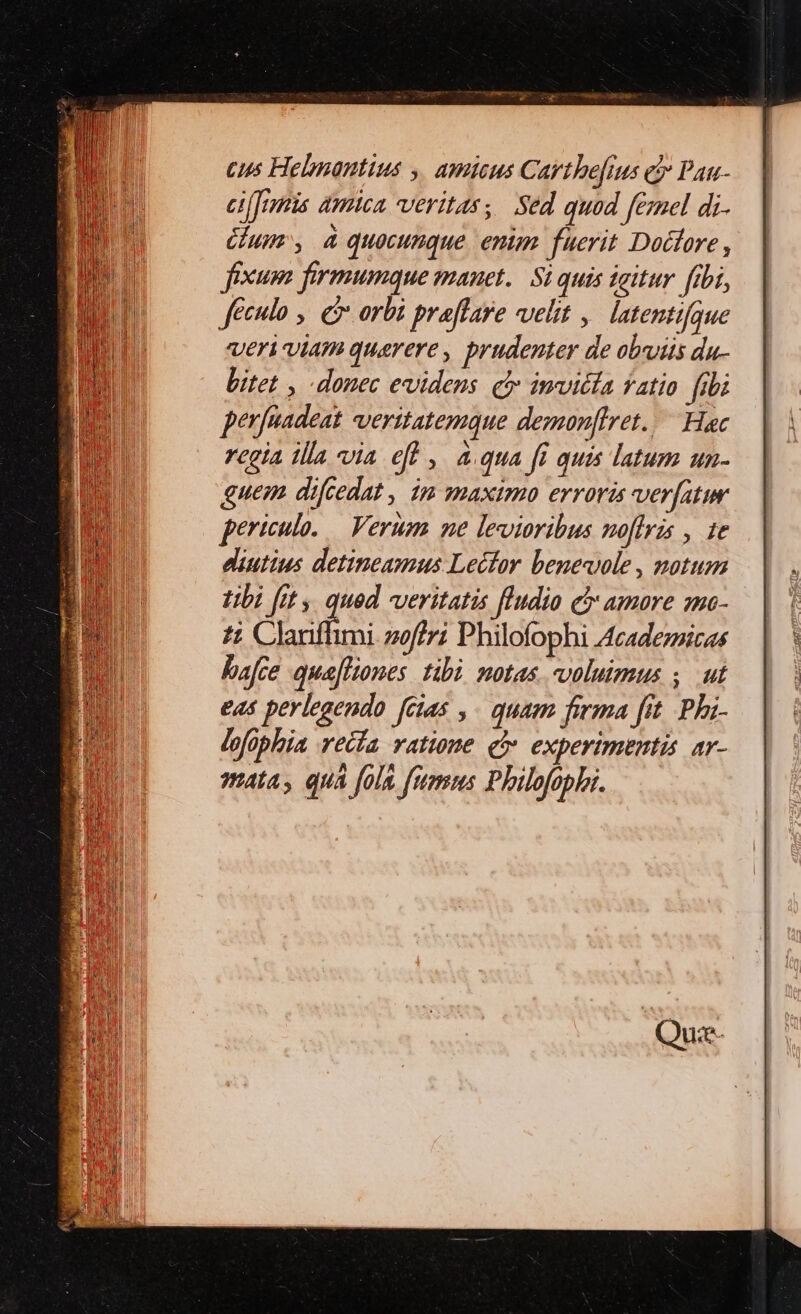 cus Helmontius , amicus Carthesius & Pau-
cissimis amica veritas; Sed quod semel di-
ctum , à quocumque enim fuerit Doctore ,
fixum firmumque manet. Si quis igitur sibi,
seculo , & orbi præstare velit , latentisque
veri viam quærere , prudenter de obviis du-
bitet , donec evidens & invicta ratio sibi
persuadeat veritatemque demonstret. Hæc
regia illa via est , à qua si quis latum un-
guem discedat , in maximo erroris versatur
periculo. Verùm ne levioribus nostris , te
diutius detineamus Lector benevole , notum
tibi sit , quod veritatis studio & amore mo-
ti Clarissimi nostri Philosophi Academicas
hasce quæstiones tibi notas voluimus ; ut
eas perlegendo scias , quam firma sit Phi-
losophia recta ratione & experimentis ar-
mata, quâ solâ sumus Philosophi.
Quæ-